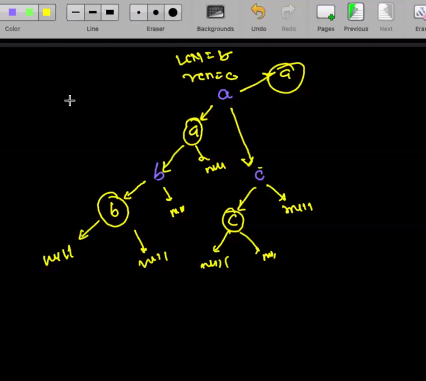 Color
Line
Eraser
Backgrounds
Undo
Redo
Pages
Previous
Next
Eras
a
a
a
null
b
c
b
null
c
null
null
null